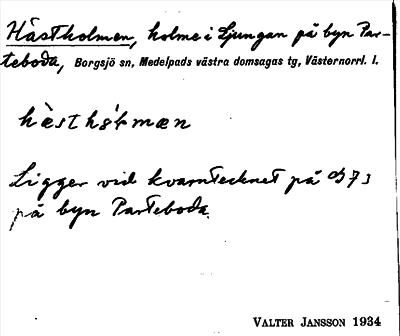 Hästholmen, holme i Ljungan på byn Par-
teboda, Borgsjö sn, Medelpads västra domsagas tg, Västernorrl. l.
Ligger vid kvarntecknet på
på byn Parteboda.
VALTER JANSSON 1934